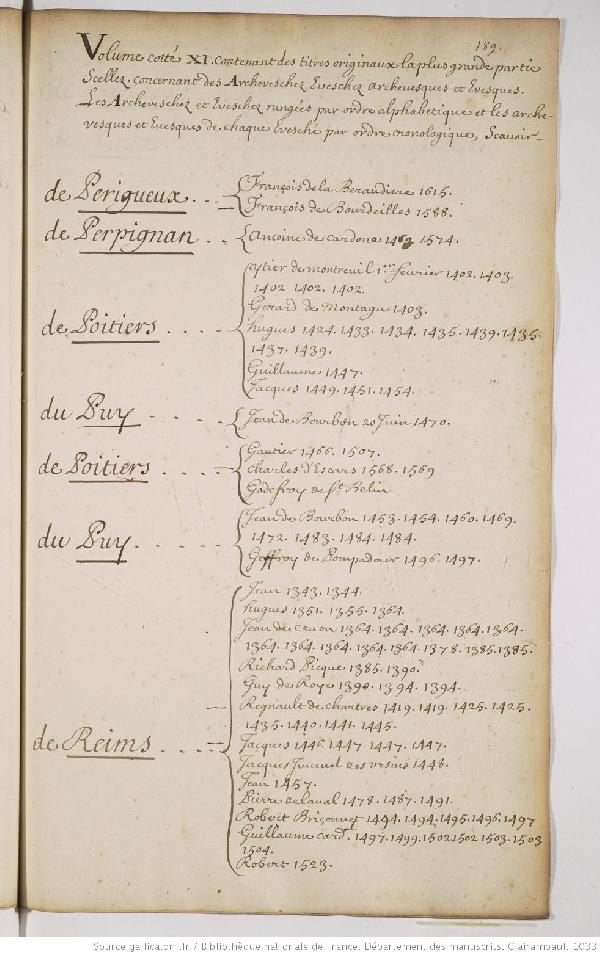 189.
Volume cotté XI. Contenant des titres originaux la plus grande partie
Scellez, concernant des Archeveschez Eveschez archevesques et Evesques.
Les Archeveschez et Eveschez rangées par ordre alphabetique et les arche-
vesques et Evesques de chaque Evesché par ordre cronologique, Scavoir-
de Perigueux . . -
François de la Beraudiere 1615.
François de Bourdeilles 1588.
de Perpignan . .
Antoine de cardona 1574.
de Poitiers . . . .
ytier de montreuil 1er fevrier 1402. 1403.
1402. 1402. 1402.
Gerard de Montagu 1403.
hugues 1424. 1433. 1434. 1435. 1439. 1435.
1437. 1439.
Guillaume 1447.
Jacques 1449. 1451. 1454.
du Puy - . . . .
Jean de Bourbon 20 Juin 1470.
de Poitiers . . . . -
Gautier 1466. 1507.
charles d'Escars 1568. 1569
Godefroy de St. Belin
du Puy . . . . .
Jean de Bourbon 1453. 1454. 1460. 1469.
1472. 1483. 1484. 1484.
Geffroy de Pompadour 1496. 1497.
de Reims . . . . -
Jean 1343. 1344.
hugues 1351. 1355. 1364.
Jean de craon 1364. 1364. 1364. 1364. 1364.
1364. 1364. 1364. 1364. 1364. 1378. 1385. 1385.
Richard Picque 1385. 1390.
Guy de Roye 1390. 1394. 1394.
Regnault de chartres 1419. 1419. 1425. 1425.
1435. 1440. 1441. 1445.
Jacques 1446. 1447. 1447. 1447.
Jacques Juvenel des ursins 1448.
Jean 1457.
Pierre de laval 1478. 1487. 1491.
Robert Briçonnet 1494. 1494. 1495. 1496. 1497
Guillaume card. 1497. 1499. 1502. 1502. 1503. 1503
1504.
Robert 1523.
Source gallica.bnf.fr / Bibliothèque nationale de France. Département des manuscrits. Clairambault 1033